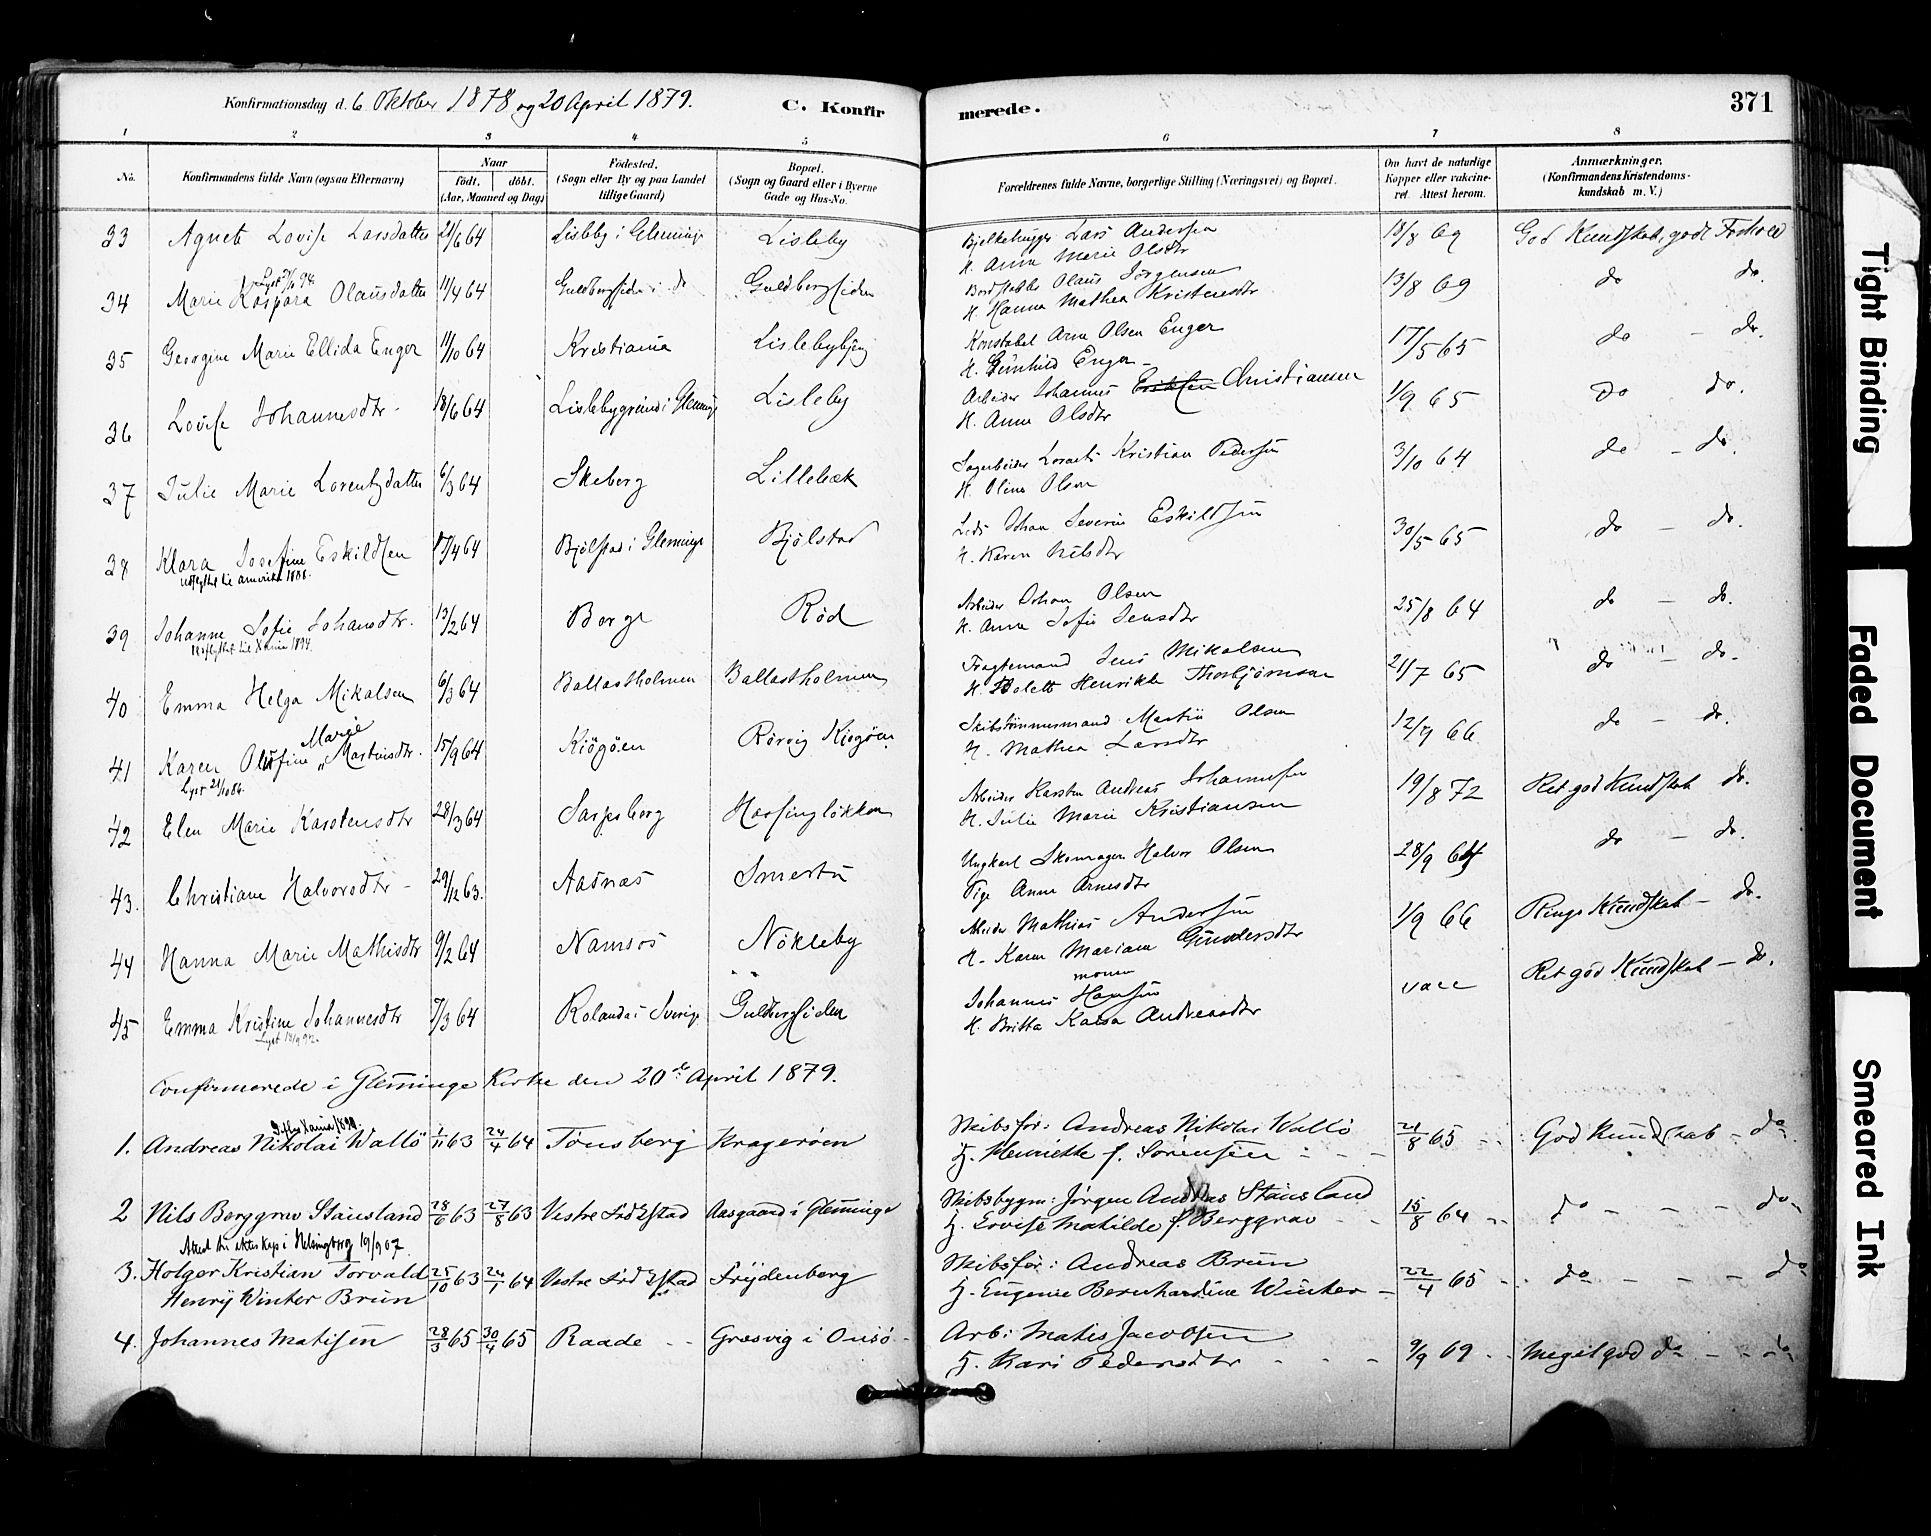 Konfirmationsdag d. 6 Oktober 1878 og 20 April 1879. C. Konfirmerede. 371
1 2 3 4 5 6 7 8
No. Konfirmandens fulde Navn (ogsaa Efternavn) Naar født. døbt. (Aar, Maaned og Dag) Fødested. (Sogn eller By og paa Landet tillige Gaard) Bopæl. (Sogn og Gaard eller i Byerne Gade og Hus-No. Forældrenes fulde Navne, borgerlige Stilling (Næringsvei) og Bopæl. Om havt de naturlige Kopper eller vaccineret. Attest herom. Anmærkninger. (Konfirmandens Kristendomskundskab m. V.)
33 Agnete Lovise Larsdatter 21/6 64 Lisleby i Glemminge Lisleby Bjelkehugger Lars Andersen 18/8 69 God Kundskab, godt Forhold
H. Anne Marie Olsdtr
34 Marie Kaspara Olausdatter 11/4 64 Guldbergsiden i do Guldbergsiden Olaus Jørgensen 13/8 69 do do.
H. Hanna Mathea Kristensdtr
35 Georgine Marie Ellida Enger 11/10 64 Kristiania Lislebybjerg Konstabel Arne Olsen Enger 17/5 65 do - do.
H. Gunhild Enger -
36 Lovise Johannesdtr - 18/6 64 Lislebygrund i Glemminge Lisleby Arbeider Johannes Eriksen Christiansen 1/9 65 do do.
H. Anne Olsdtr
37 Julie Marie Lorentzdatter 6/3 64 Skeberg Lillebæk Sagarbeider Lorents Kristian Pedersen 3/10 64 do - do.
H. Oline Olsen
38 Klara Josefine Eskildsen 17/4 64 Bjølstad i Glemminge Bjølstad Lods Johan Severin Eskildsen 30/5 65 do - do.
udflyttet til Amerika 1888.
H. Karen Nilsdtr
39 Johanne Sofie Johansdtr. 13/2 64 Borge Rød Arbeider Johan Olsen 25/8 64 do - do.
Udflyttet til Xania 1894
H. Anne Sofie Jensdtr
40 Emma Helga Mikalsen 6/3 64 Ballastholmen Ballastholmen Fragtemand Jens Mikalsen 21/7 65 do - do.
H. Bolette Henrikke Thorbjørnsen
41 Karen Olufine Marie Martinsdtr. 15/9 64 Kjøgøen Rørvig Kjøgøen Skibstømmermand Martin Olsen 12/9 66 do - do.
Lyst 21/10 86.
H. Mathea Larsdtr
42 Elen Marie Karstensdtr 28/3 64 Sarpsborg Haslingløkken Arbeider Karsten Andreas Johannesen 19/8 72 Ret god Kundskab do.
H. Julie Marie Kristiansen
43. Christiane Halvorsdtr - 29/12 63. Aasnæs Smertu Ungkarl Skomager Halvor Olsen 28/9 64 do - do.
Pige Anne Arnesdtr
44 Hanna Marie Mathisdtr 9/2 64 Namsos Nøkleby Arbeider Mathias Andersen 1/9 66 Ringe Kundskab - do.
H. Karen Mariane Gundersdtr
45 Emma Kristine Johannesdtr 7/3 64 Rolanda i Sverige Guldbergsiden Johannes Hansen vacc Ret god Kundskab - do.
H. Britta Kaisa Andreasdtr
Confirmerede i Glemminge Kirke den 20de April 1879.
1. Andreas Nikolai Wallö 1/11 63 24/4 64 Tønsberg Kragerøen Skibsfør: Andreas Nikolai Wallö 21/8 65 - God Kundskab - do.
H. Henriette f. Sørensen
2 Nils Berggrav Stausland 28/6 63 27/8 63 Vestre Fredrstad Aasgaard i Glemminge Skibsbygm: Jørgen Andreas Stausland 15/8 64 - do - - - do-
H. Lovise Matilde f. Berggrav
Attest til ekteskap i Helsingborg 19/9 07.
3. Holger Kristian Torvald Henry Winter Brun 25/10 63 24/1 64 Vestre Fredrstad Frydenberg Skibsfør: Andreas Brun 22/4 65 - do - - - do
H. Eugenie Bernhardine Winter -
4. Johannes Matisen 28/3 65 30/4 65 Raade - - Græsvig i Onsø - Arb: Matis Jacobsen 9/9 69 - Meget god do - - do
H. Kari Pedersdtr
Tight Binding
Faded Document
Smeared Ink